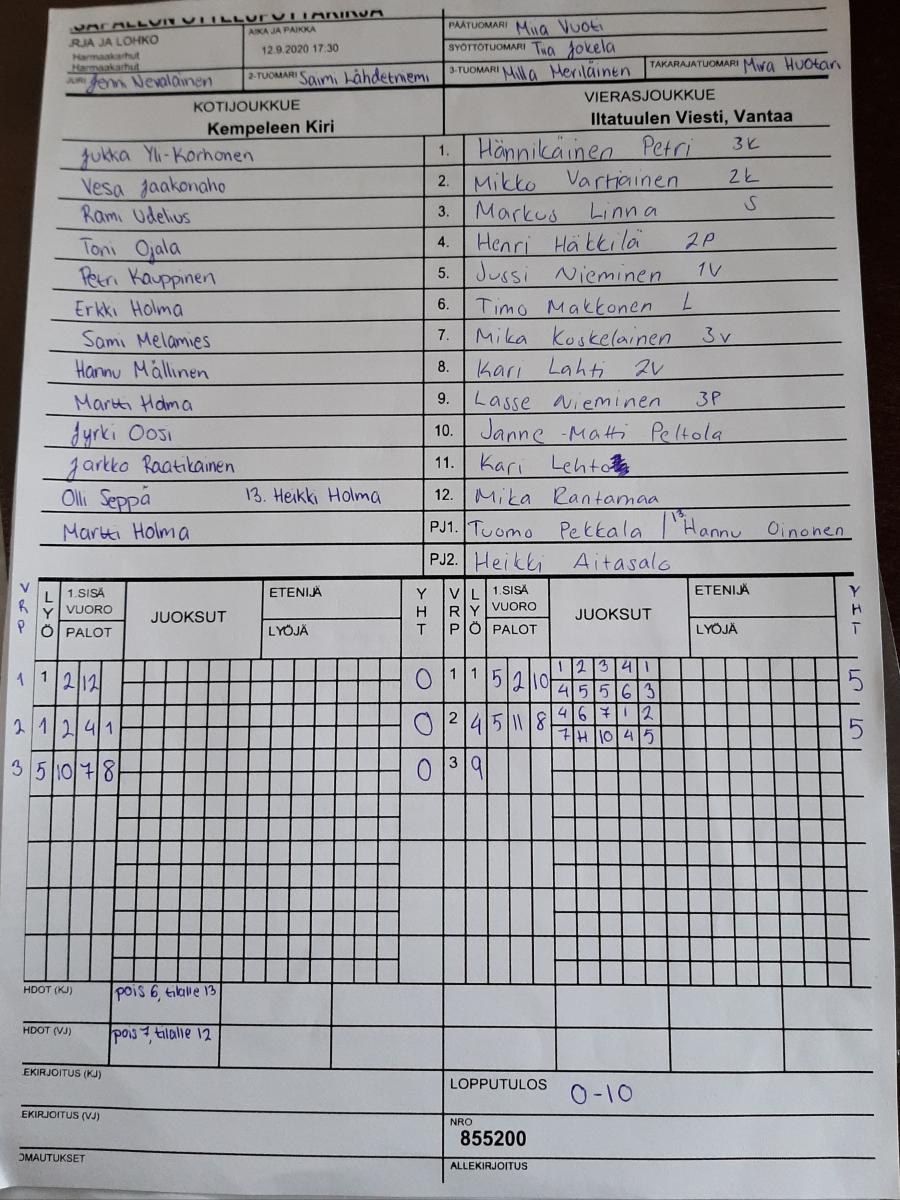 RJA JA LOHKO
Harmaakarhut
Harmaakarhut
AIKA JA PAIKKA
12.9.2020 17:30
PÄÄTUOMARI Miia Vuoti
SYÖTTÖTUOMARI Tiia Jokela
Jenni Nevalainen
2-TUOMARI Saimi Lähdetniemi
3-TUOMARI Milla Meriläinen
TAKARAJATUOMARI Mira Huotari
KOTIJOUKKUE
Kempeleen Kiri
VIERASJOUKKUE
Iltatuulen Viesti, Vantaa
Jukka Yli-Korhonen 1. Hännikäinen Petri 3K
Vesa Jaakonaho 2. Mikko Vartiainen 2K
Rami Udelius 3. Markus Linna S
Toni Ojala 4. Henri Häkkilä 2P
Petri Kauppinen 5. Jussi Nieminen 1V
Erkki Holma 6. Timo Makkonen L
Sami Melamies 7. Mika Koskelainen 3V
Hannu Mällinen 8. Kari Lahti 2V
Martti Holma 9. Lasse Nieminen 3P
Jyrki Oosi 10. Janne-Matti Peltola
Jarkko Raatikainen 11. Kari Lehto
Olli Seppä 13. Heikki Holma 12. Mika Rantamaa
Martti Holma PJ1. Tuomo Pekkala / 13. Hannu Oinonen
PJ2. Heikki Aitasalo
VRP LYÖ 1.SISÄ VUORO PALOT JUOKSUT ETENIJÄ LYÖJÄ YHT VRP LYÖ 1.SISÄ VUORO PALOT JUOKSUT ETENIJÄ LYÖJÄ YHT
1 1 2 12 0 1 1 5 2 10 1 2 3 4 1 5
4 5 5 6 3
2 1 2 4 1 0 2 4 5 11 8 4 6 7 1 2 5
7 H 10 4 5
3 5 10 7 8 0 3 9
HDOT (KJ) pois 6, tilalle 13
HDOT (VJ) pois 7, tilalle 12
EKIRJOITUS (KJ)
LOPPUTULOS 0-10
EKIRJOITUS (VJ)
NRO
855200
OMAUTUKSET
ALLEKIRJOITUS